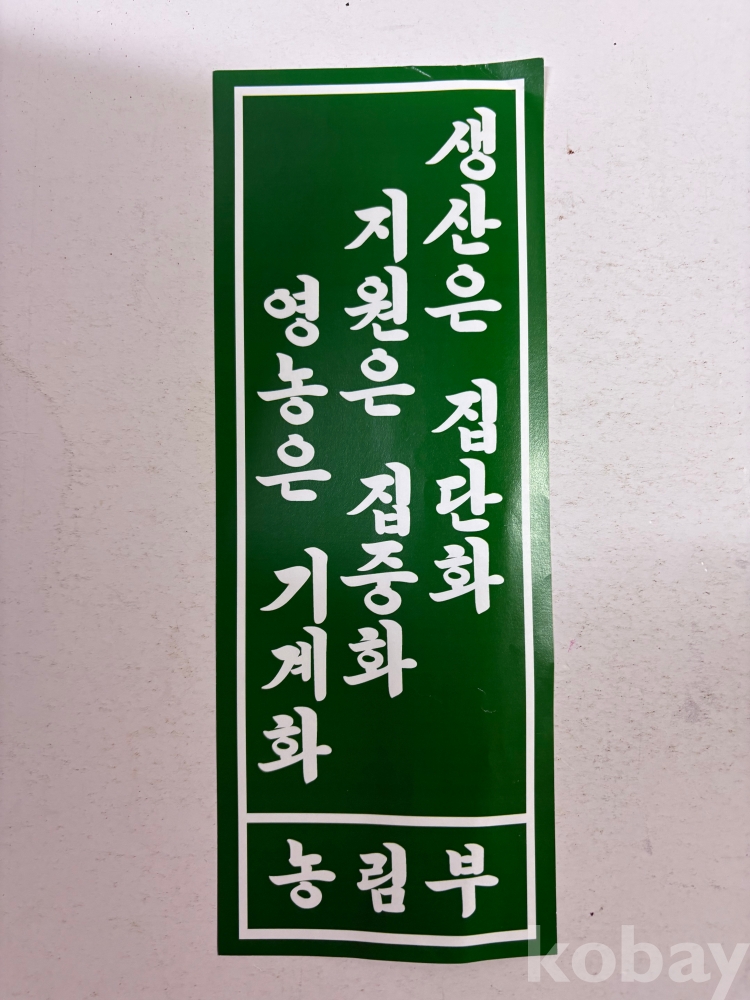 생산은 집단화
지원은 집중화
영농은 기계화
농림부
kobay